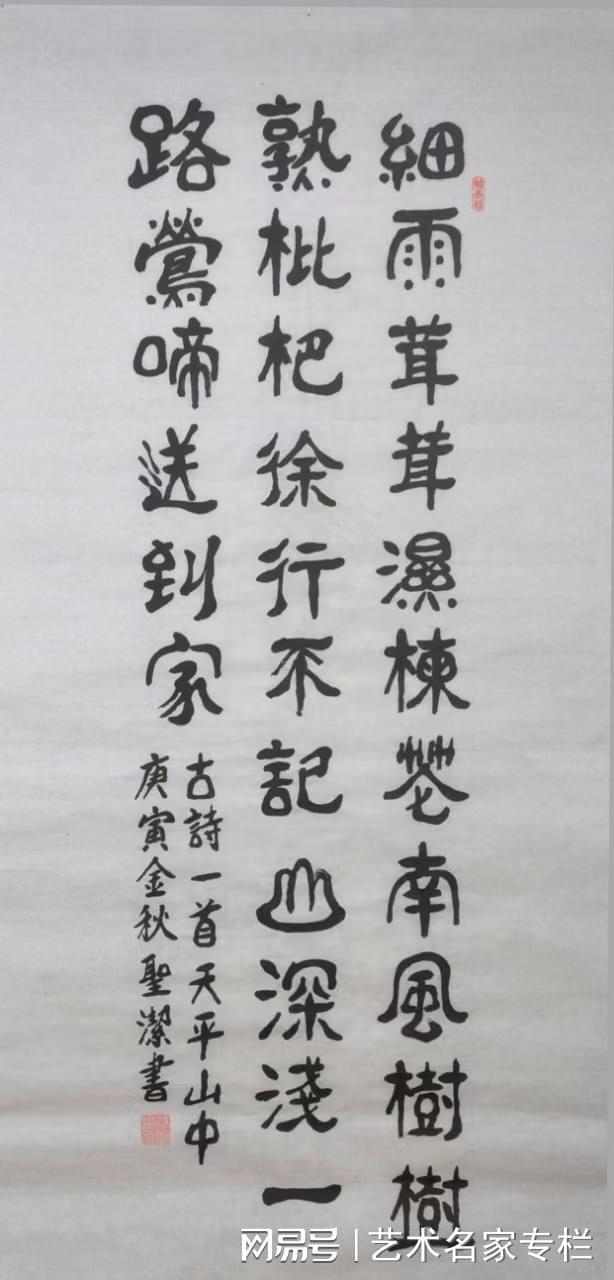 細雨茸茸濕楝花南風樹樹
熟枇杷徐行不記山深淺一
路鶯啼送到家
古詩一首天平山中
庚寅金秋聖潔書
网易号 | 艺术名家专栏